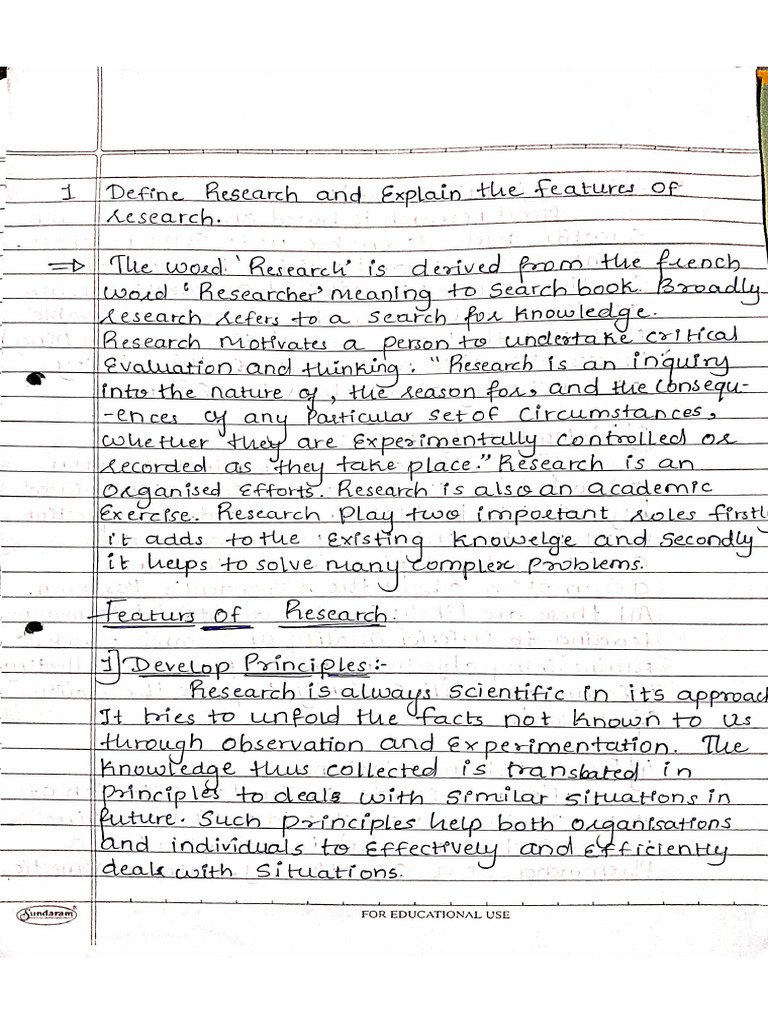 1 Define Research and Explain the features of
research.
⇒ The word 'Research' is derived from the french
word 'Researcher' meaning to search book. Broadly
research refers to a search for knowledge.
Research motivates a person to undertake critical
Evaluation and thinking. "Research is an inquiry
into the nature of, the reason for, and the consequ-
-ences of any particular set of circumstances,
whether they are Experimentally controlled or
recorded as they take place." Research is an
organised Efforts. Research is also an academic
Exercise. Research Play two important roles firstly
it adds to the Existing knowelge and secondly
it helps to solve many complex problems.
Featurs of Research:
1] Develop Principles:-
Research is always scientific in its approach
It tries to unfold the facts not known to us
through observation and Experimentation. The
knowledge thus collected is translated in
principles to deals with similar situations in
future. Such principles help both organisations
and individuals to Effectively and efficiently
deals with situations.
Sundaram®
FOR EDUCATIONAL USE